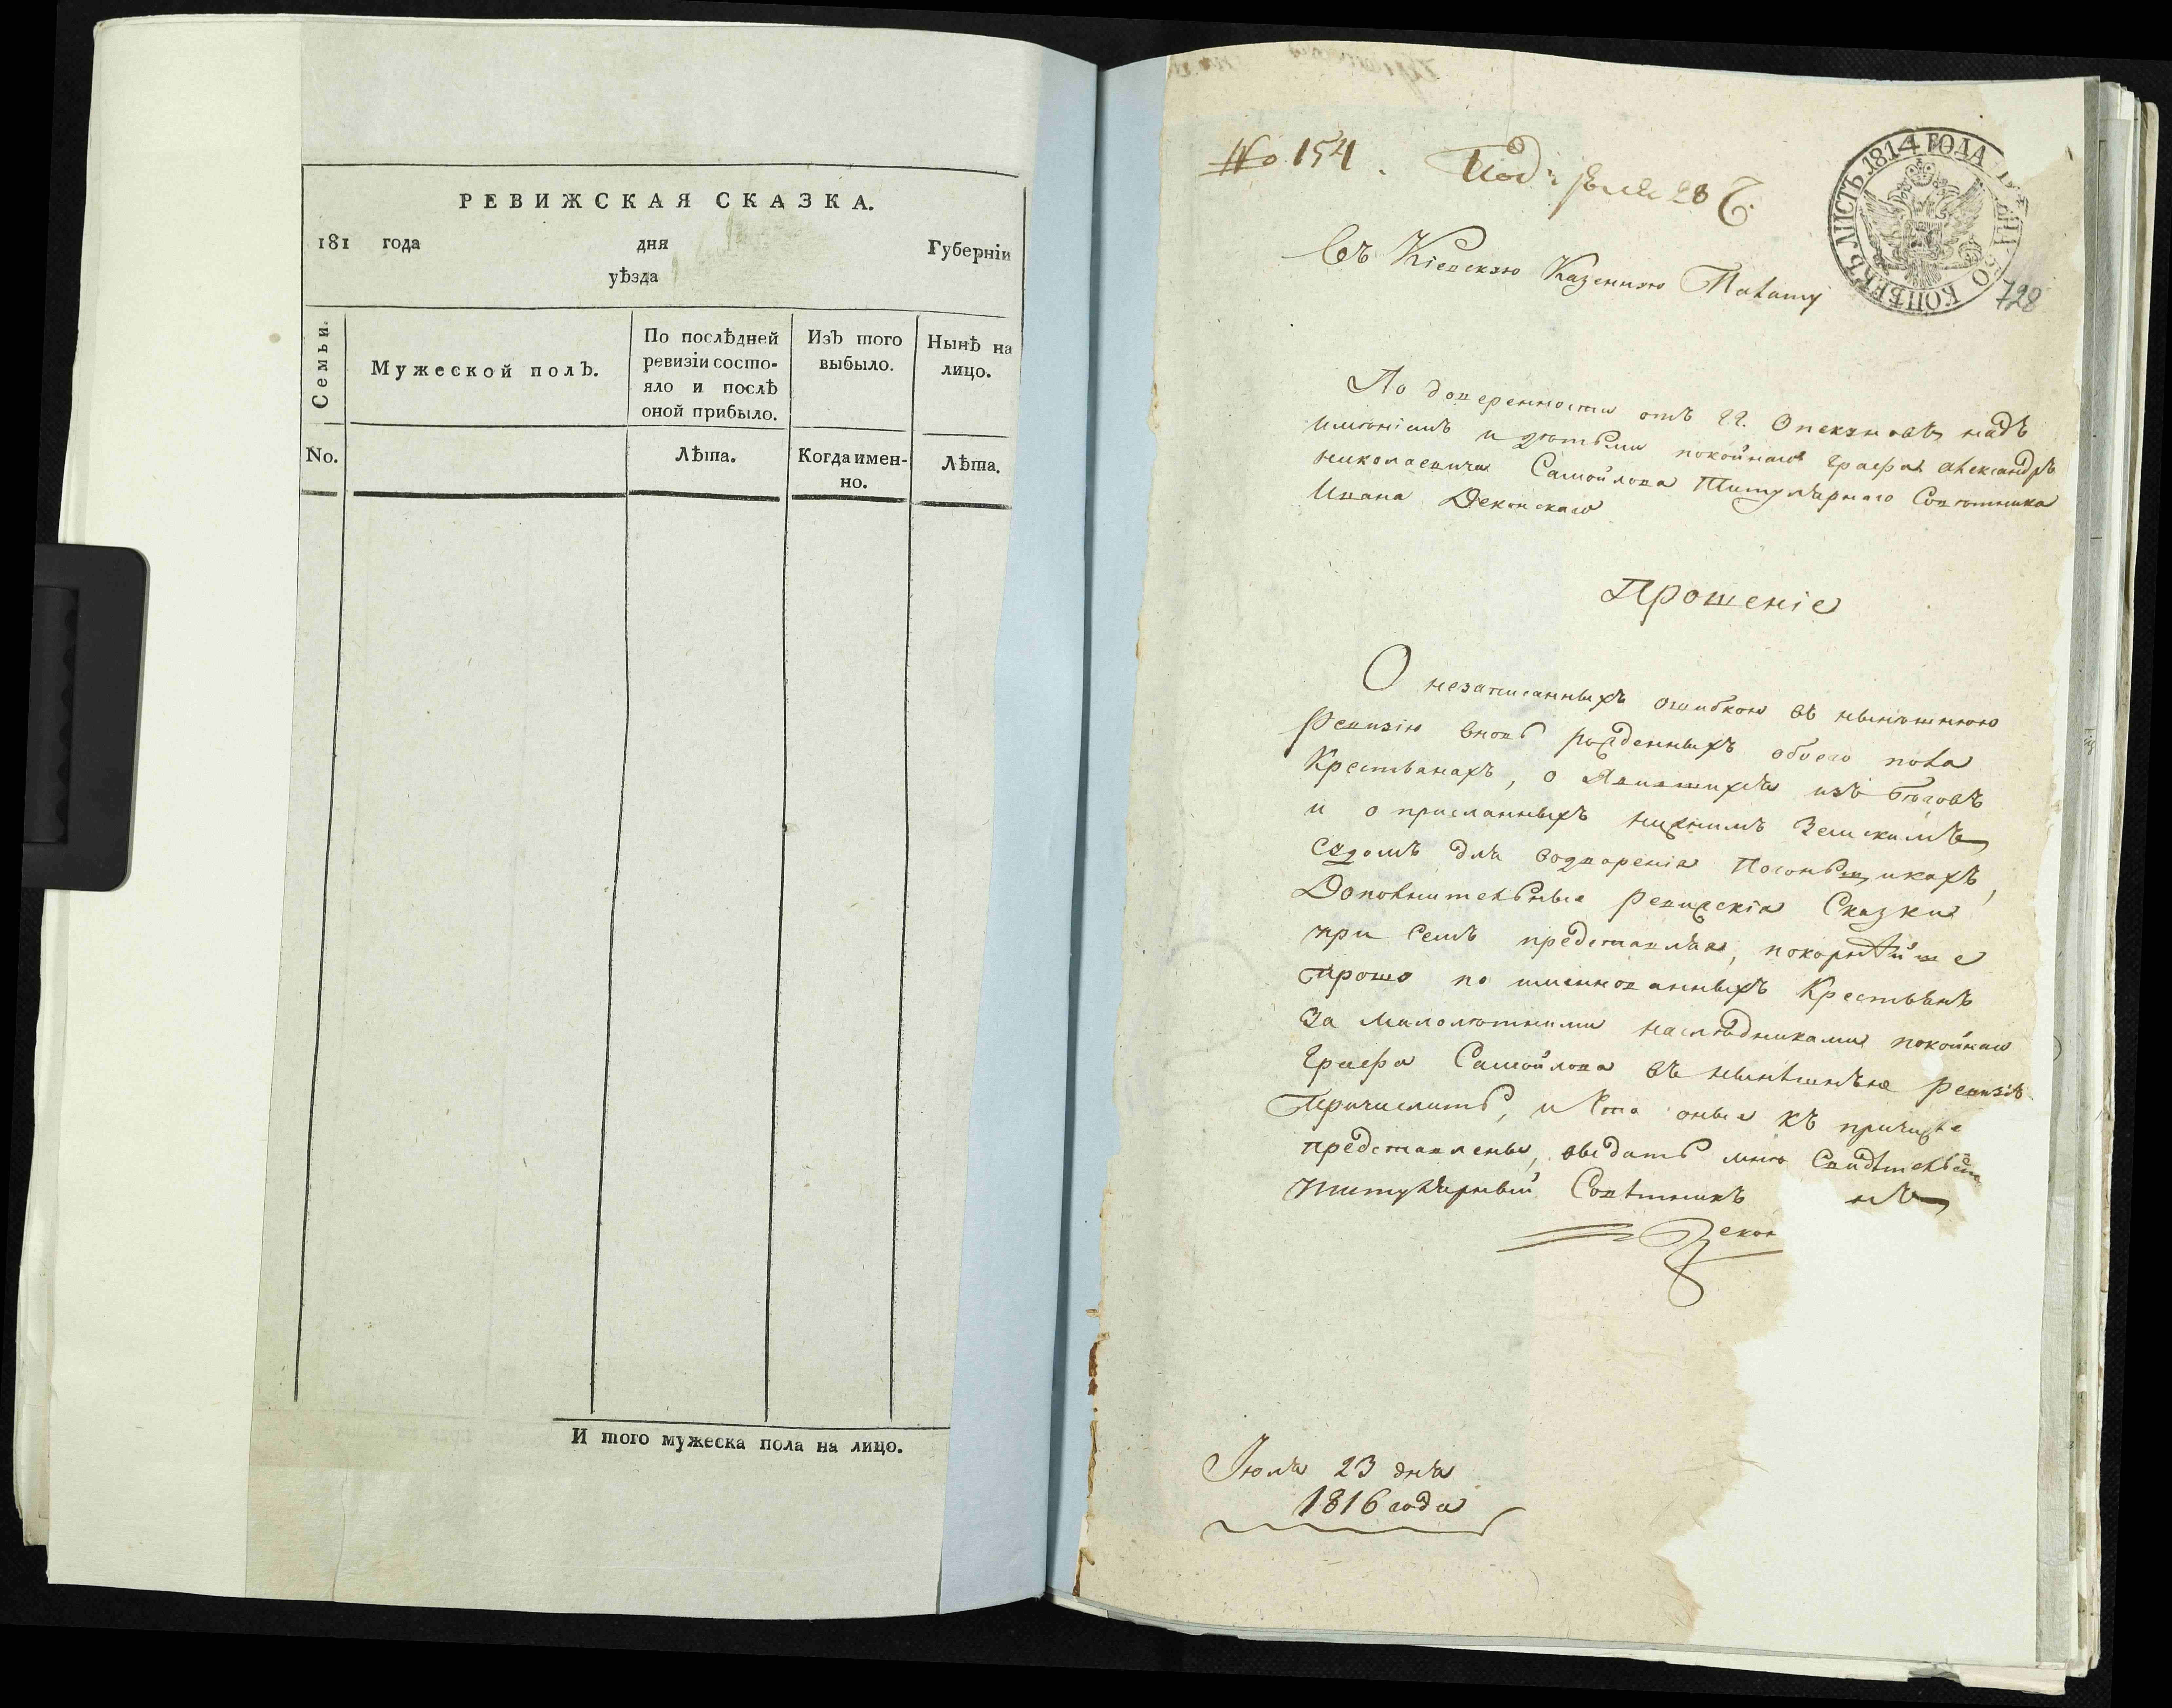 РЕВИЖСКАЯ СКАЗКА.
181 года дня Губерніи
уѣзда
Семьи.
Мужеской полЪ.
По послѣдней
ревизіи состо-
яло и послѣ
оной прибыло.
ИзЪ того
выбыло.
Нынѣ на
лицо.
No.
Лѣта.
Когда имен-
но.
Лѣта.
И того мужеска пола на лицо.
No 154. Под: Юля 28 Ч.
ЛИСТЪ 1814 ГОДА 50 КОПѢЕКЪ
728
Въ Кіевскую Казенную Палату
По довѣренности отъ ГГ. Опекуновъ надъ
имѣніемъ и дѣтьми покойнаго Графа Александръ
Николаевича Самойлова Титулярнаго Совѣтника
Ивана Деконскаго
Прошеніе
О незаписанныхъ ошибкою въ нынѣшнюю
Ревизію вновь рожденныхъ обоего пола
Крестьянахъ, о Явившихся изъ бѣговъ
и о присланныхъ нижнимъ Земскимъ
Судомъ для водворенія Погоньщикахъ,
Дополнительные Ревижскія Сказки
при семъ представляя, покорнѣйше
прошо поимянованныхъ Крестьянъ
За малолѣтними наслѣдниками покойнаго
Графа Самойлова въ нынѣшнѣю Ревизію
Причислить, и что оные къ причи
представлены, выдать мнѣ Свидѣтельст
Титулярный Совѣтникъ
Декон
Іюля 23 дня
1816 года